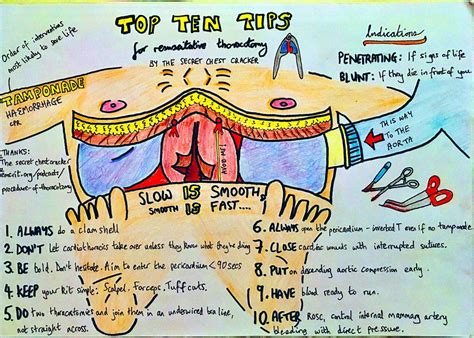 TOP TEN TIPS
for resuscitative thoracotomy
BY THE SECRET CHEST CRACKER
Order of interventions
most likely to save life
TAMPONADE
HAEMORRHAGE
CPR
Indications
PENETRATING: If signs of life
BLUNT: If they die in front of you
THIS WAY
TO THE
AORTA
THANKS:
The secret chest cracker
emcrit.org/podcast/
procedure-of-thoracotomy
SLOW IS SMOOTH,
SMOOTH IS FAST....
1. ALWAYS do a clam shell
2. DON'T let cardiothoracics take over unless they know what they're doing
3. BE bold. Don't hesitate. Aim to enter the pericardium <90secs
4. KEEP your kit simple: Scalpel. Forceps. Tuff cuts.
5. DO two thoracotomies and join them in an underwired bra line,
not straight across.
6. ALWAYS open the pericardium - inverted T even if no tamponade.
7. CLOSE cardiac wounds with interrupted sutures.
8. PUT on descending aortic compression early.
9. HAVE blood ready to run.
10. AFTER ROSC, control internal mammary artery
bleeding with direct pressure.